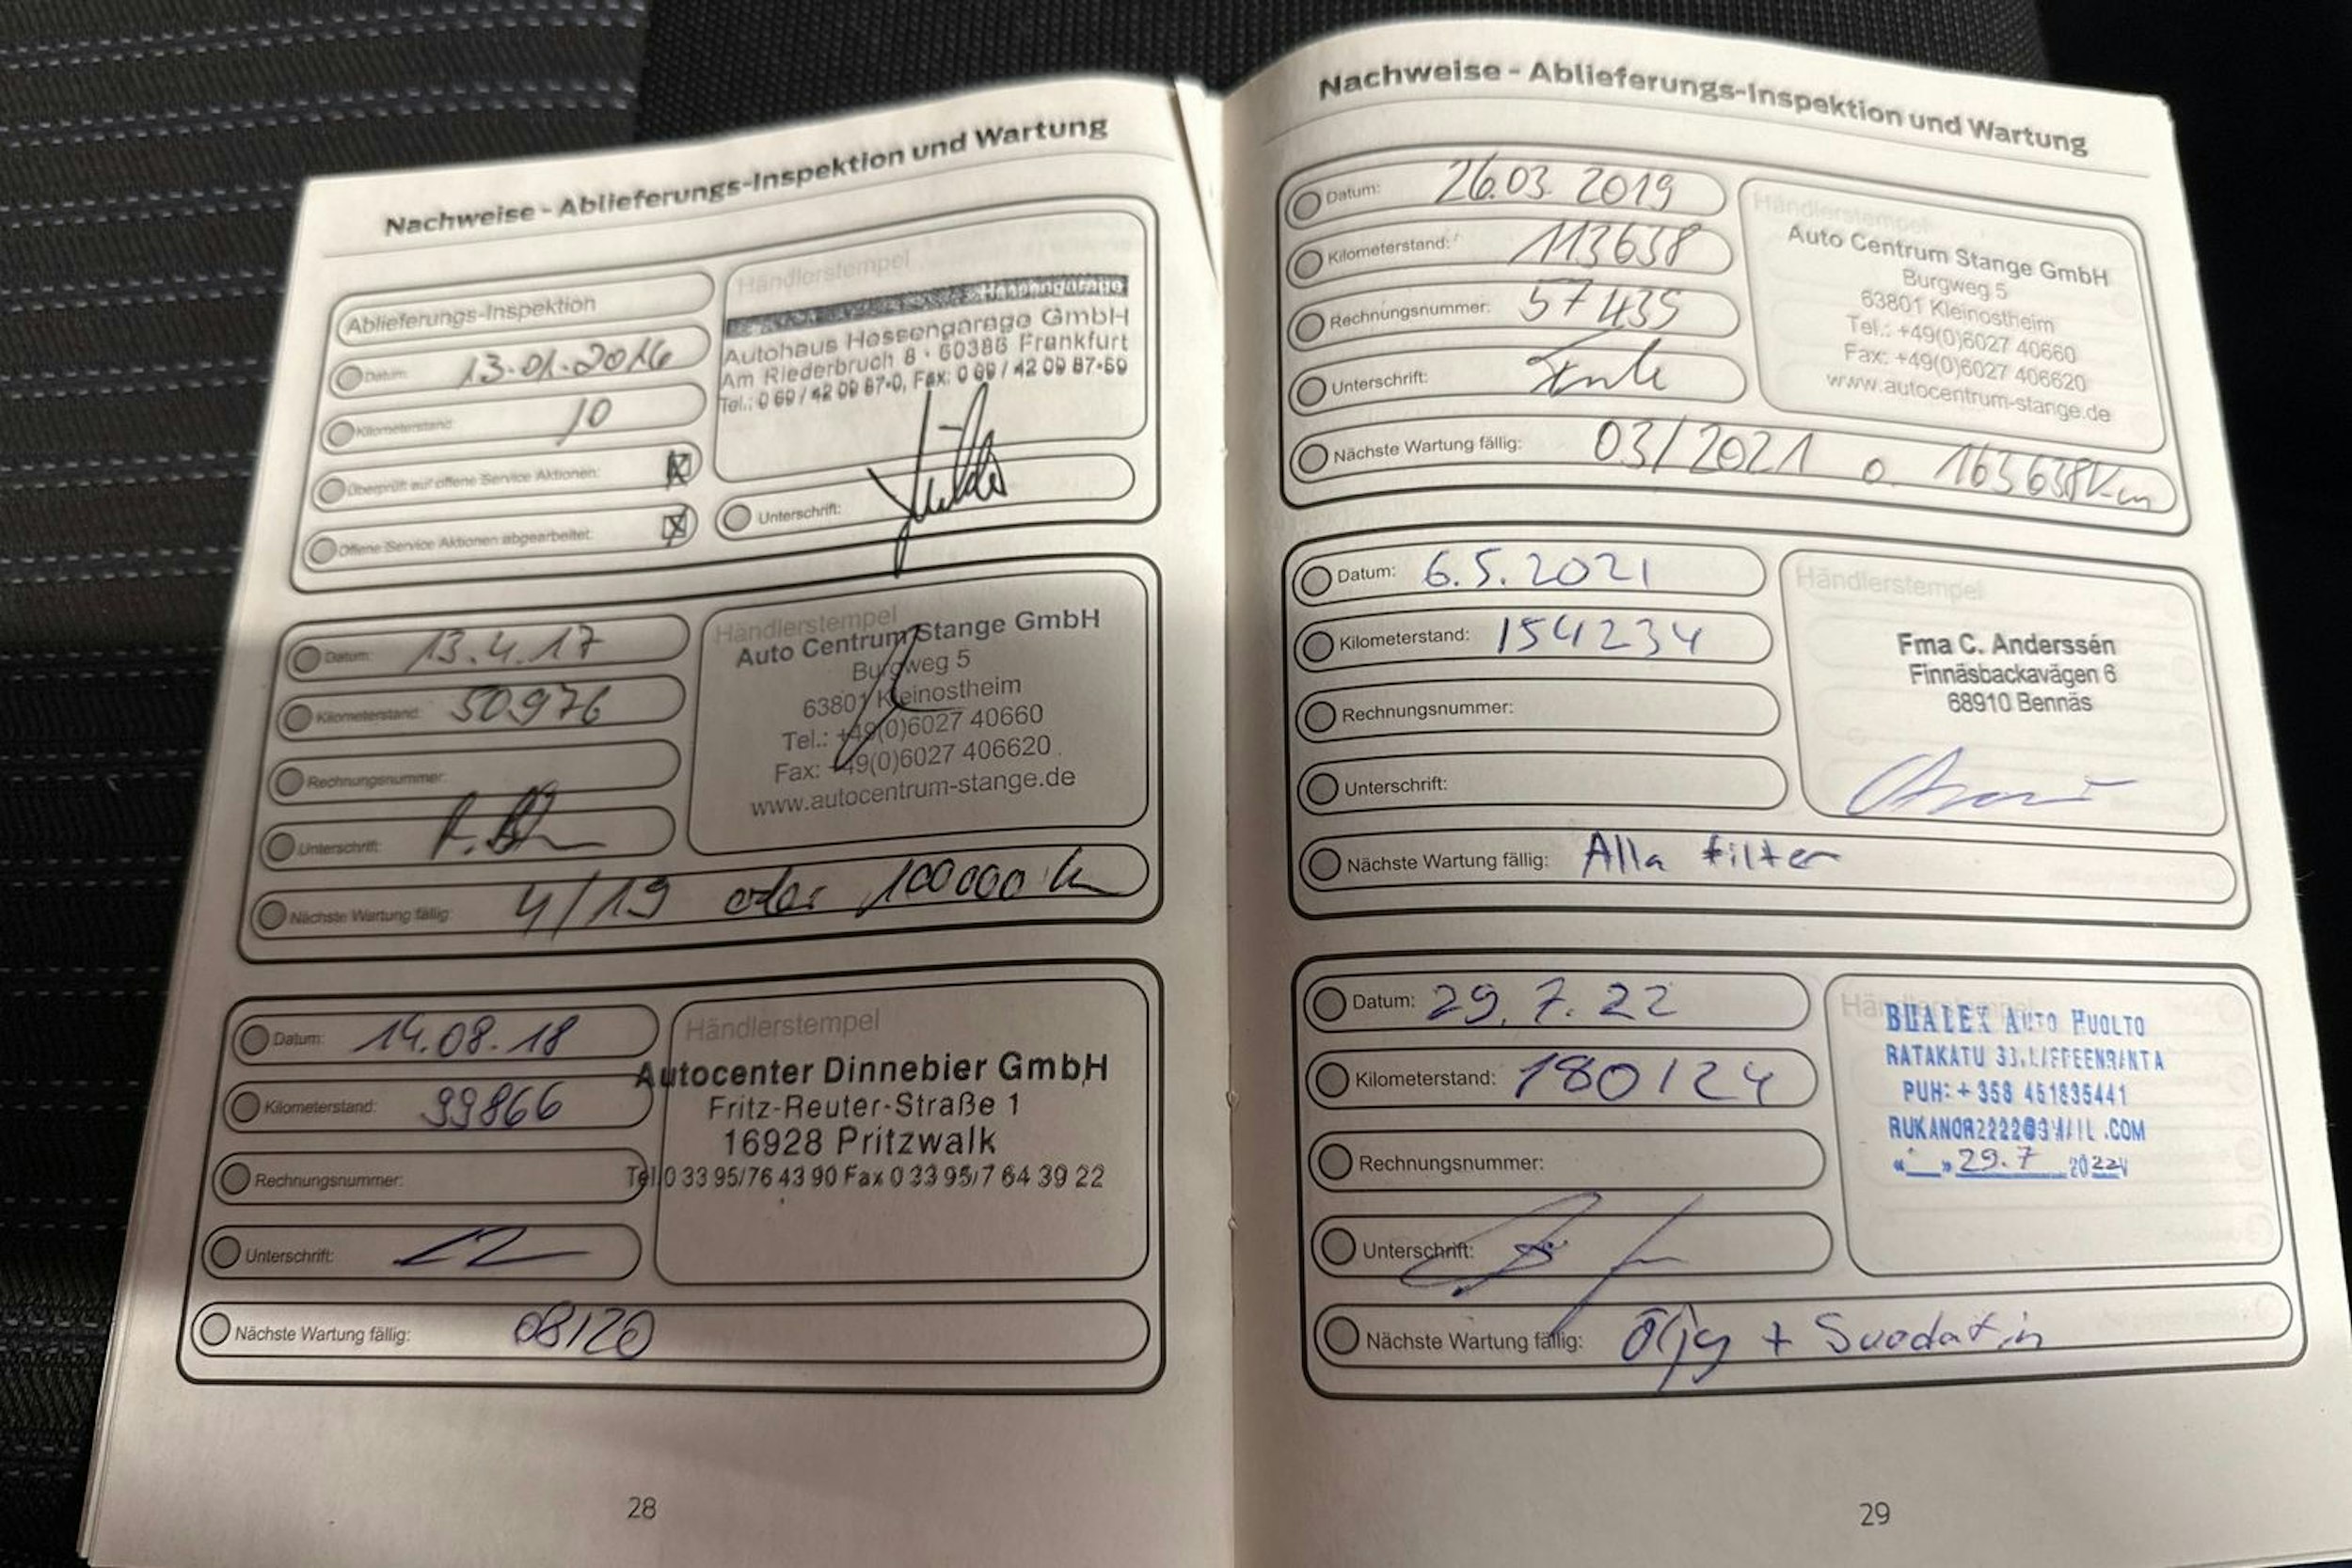 Nachweise - Ablieferungs-Inspektion und Wartung
Ablieferungs-Inspektion
Datum: 13.01.2016
Kilometerstand: 10
Überprüft auf offene Service Aktionen:
Offene Service Aktionen abgearbeitet:
Händlerstempel
Hessengarage
Autohaus Hessengarage GmbH
Am Riederbruch 8 · 60386 Frankfurt
Tel.: 0 69 / 42 09 87-0, Fax: 0 69 / 42 09 87-69
Unterschrift:
Datum: 13.4.17
Kilometerstand: 50976
Rechnungsnummer:
Unterschrift:
Händlerstempel
Auto Centrum Stange GmbH
Burgweg 5
63801 Kleinostheim
Tel.: +49(0)6027 40660
Fax: +49(0)6027 406620
www.autocentrum-stange.de
Nächste Wartung fällig: 4/19 oder 100000 k
Datum: 14.08.18
Kilometerstand: 99866
Rechnungsnummer:
Unterschrift:
Händlerstempel
Autocenter Dinnebier GmbH
Fritz-Reuter-Straße 1
16928 Pritzwalk
Tel 0 33 95/76 43 90 Fax 0 33 95/7 64 39 22
Nächste Wartung fällig: 08/20
28
Nachweise - Ablieferungs-Inspektion und Wartung
Datum: 26.03.2019
Kilometerstand: 113638
Rechnungsnummer: 57435
Unterschrift:
Händlerstempel
Auto Centrum Stange GmbH
Burgweg 5
63801 Kleinostheim
Tel.: +49(0)6027 40660
Fax: +49(0)6027 406620
www.autocentrum-stange.de
Nächste Wartung fällig: 03/2021 o. 163638Km
Datum: 6.5.2021
Kilometerstand: 154234
Rechnungsnummer:
Unterschrift:
Händlerstempel
Fma C. Anderssén
Finnäsbackavägen 6
68910 Bennäs
Nächste Wartung fällig: Alla filter
Datum: 29.7.22
Kilometerstand: 180124
Rechnungsnummer:
Unterschrift:
Händlerstempel
AUTO HUOLTO
RATAKATU 33.
PUH: + 358 451835441
29.7 2022
Nächste Wartung fällig: Öljy + Suodatin
29